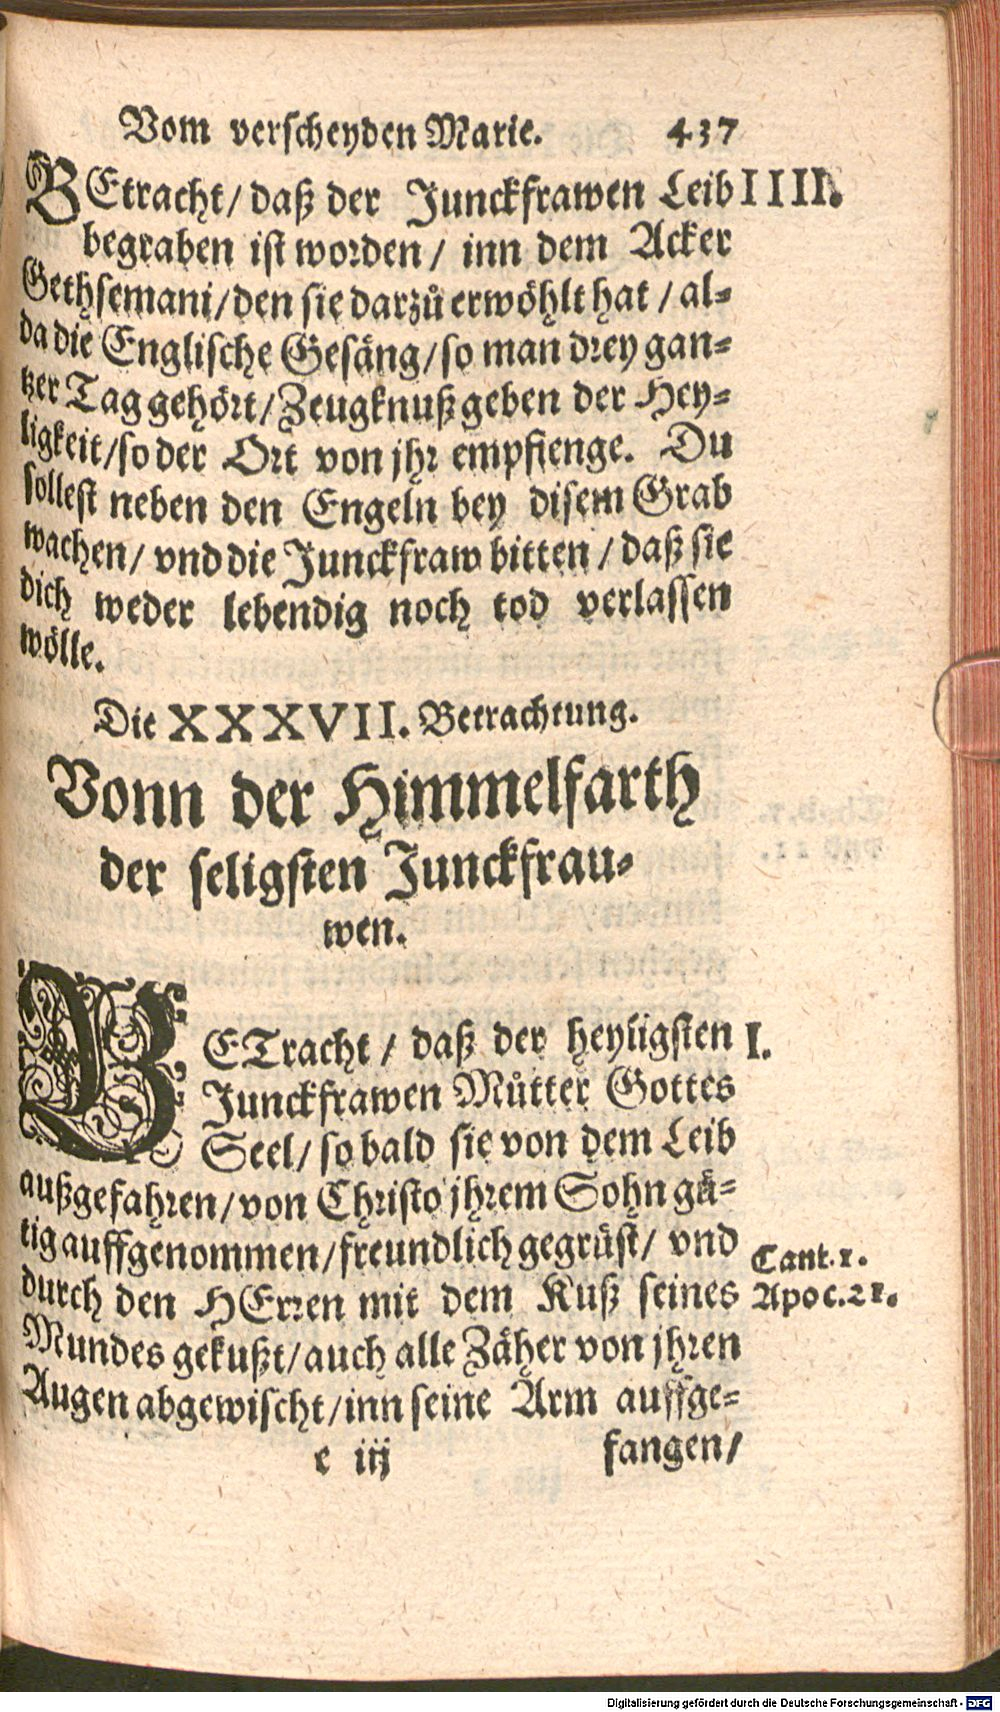 Vom verscheyden Marie. 437
BEtracht/ daß der Junckfrawen Leib IIII.
begraben ist worden/ inn dem Acker
Gethsemani/ den sie darzů erwöhlt hat/ al-
da die Englische Gesäng/ so man drey gan-
tzer Tag gehört/ Zeugknuß geben der Hey-
ligkeit/ so der Ort von jhr empfienge. Du
sollest neben den Engeln bey disem Grab
wachen/ vnd die Junckfraw bitten/ daß sie
dich weder lebendig noch tod verlassen
wölle.
Die XXXVII. Betrachtung.
Vonn der Himmelfarth
der seligsten Junckfrau-
wen.
BETracht/ daß der heyligsten I.
Junckfrawen Můtter Gottes
Seel/ so bald sie von dem Leib
außgefahren/ von Christo jhrem Sohn gü-
tig auffgenommen/ freundlich gegrüst/ vnd
durch den HErren mit dem Kuß seines
Mundes gekußt/ auch alle Zäher von jhren
Augen abgewischt/ inn seine Arm auffge-
Cant. 1.
Apoc. 21.
e iij fangen/
Digitalisierung gefördert durch die Deutsche Forschungsgemeinschaft - DFG